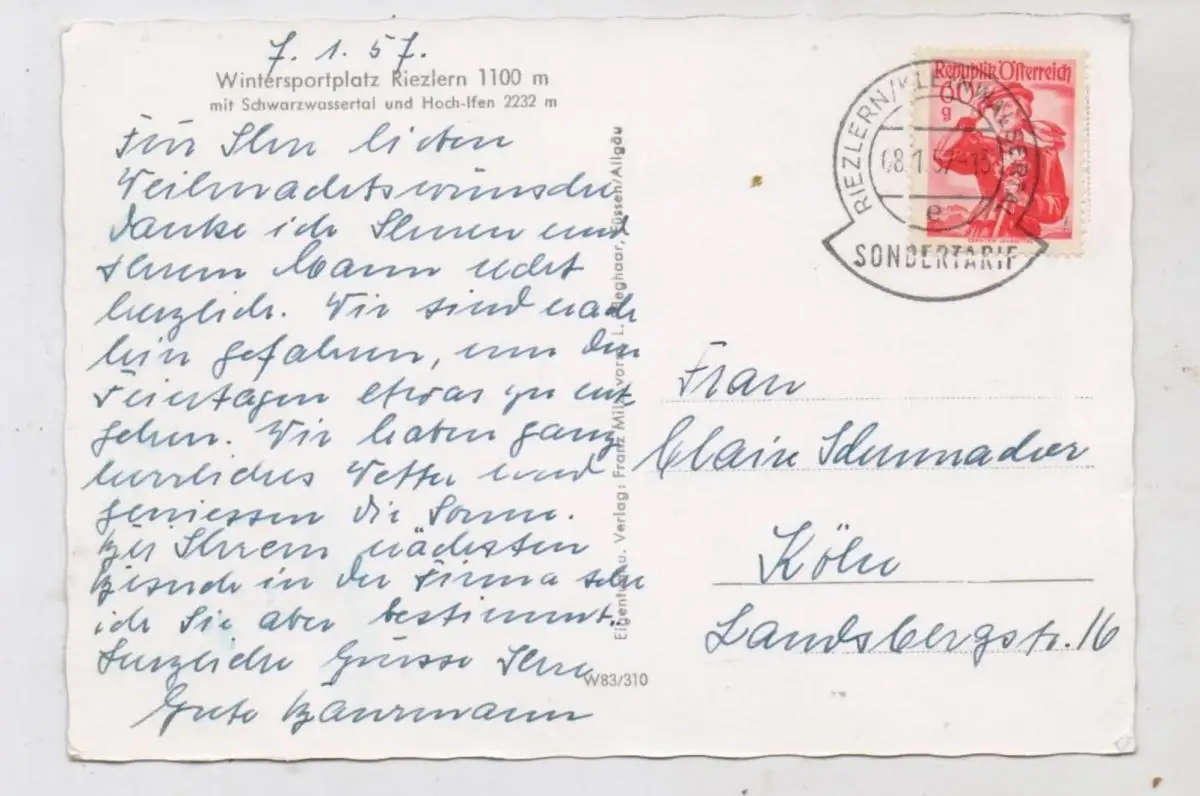 7. 1. 57.
Wintersportplatz Riezlern 1100 m
mit Schwarzwassertal und Hoch-Ifen 2232 m
Für Ihre lieben
Weihnachtswünsche
danke ich Ihnen und
Ihrem Mann recht
herzlich. Wir sind nach
hier gefahren, um den
Feiertagen etwas zu ent-
gehen. Wir haben ganz
herrliches Wetter und
geniessen die Sonne.
Bei Ihrem nächsten
Besuch in der Firma sehe
ich Sie aber bestimmt.
Herzliche Grüsse Ihre
Grete Baurmann
Eigentum u. Verlag: Franz Milz vorm. L. Heghaar, Füssen/Allgäu
W83/310
Republik Österreich
60
g
RIEZLERN/KLEINWALSERTAL
08.1.57-15
e
SONDERTARIF
Frau
Claire Schumacher
Köln
Landsbergstr. 16